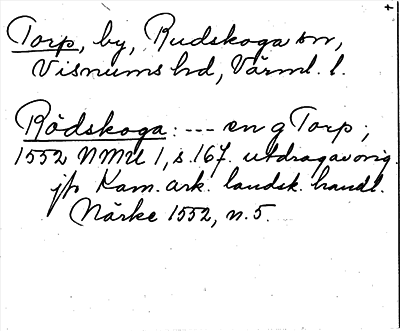 +
Torp, by, Rudskoga sn,
Visnums hd, Värml. l.
Rådskoga: --- en g Torp;
1552 NMU 1, s. 167. utdrag av orig.
jfr Kam. ark. landsk. handl.
Närke 1552, n. 5.